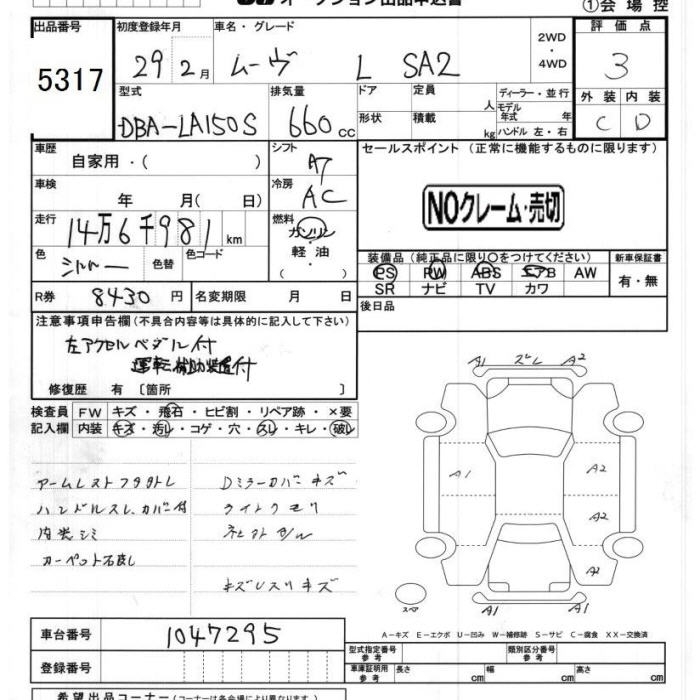 オークション出品申込書
①会場控
出品番号 初度登録年月 車名・グレード 2WD・4WD 評価点
5317 29年2月 ムーヴ L SA2 3
型式 排気量 ドア 定員 人 ディーラー・並行 外装 内装
DBA-LA150S 660cc 形状 積載 kg モデル年式 年 ハンドル 左・右 C D
車歴 自家用・( ) シフト A7 セールスポイント (正常に機能するものに限ります)
車検 年 月( 日) 冷房 AC
NOクレーム・売切
走行 14万6千981km 燃料 ガソリン・軽油・
色 シルバー 色替 色コード 装備品(純正品に限り〇をつけてください) 新車保証書
PS PW ABS エアB AW 有・無
SR ナビ TV カワ
R券 8430円 名変期限 月 日 後日品
注意事項申告欄(不具合内容等は具体的に記入して下さい)
左アクセルペダル付
運転補助装置付
修復歴 有 〔箇所 〕
検査員 FW キズ・飛石・ヒビ割・リペア跡・×要
記入欄 内装 キズ・汚レ・コゲ・穴・スレ・キレ・破レ
A1 ズレ A2
A1 A2
A2
A2
A1 A1
スペア
Dミラーカバーキズ
ハンドルスレ、カバー付 ライトクモリ
内装シミ
キズレスリキズ
A-キズ E-エクボ U-凹み W-補修跡 S-サビ C-腐食 XX-交換済
車台番号 1047295
型式指定番号 参考 類別区分番号 参考
登録番号 車庫証明用 参考 長さ cm 幅 cm 高さ cm
希望出品コーナー(コーナーは各会場により異なります)